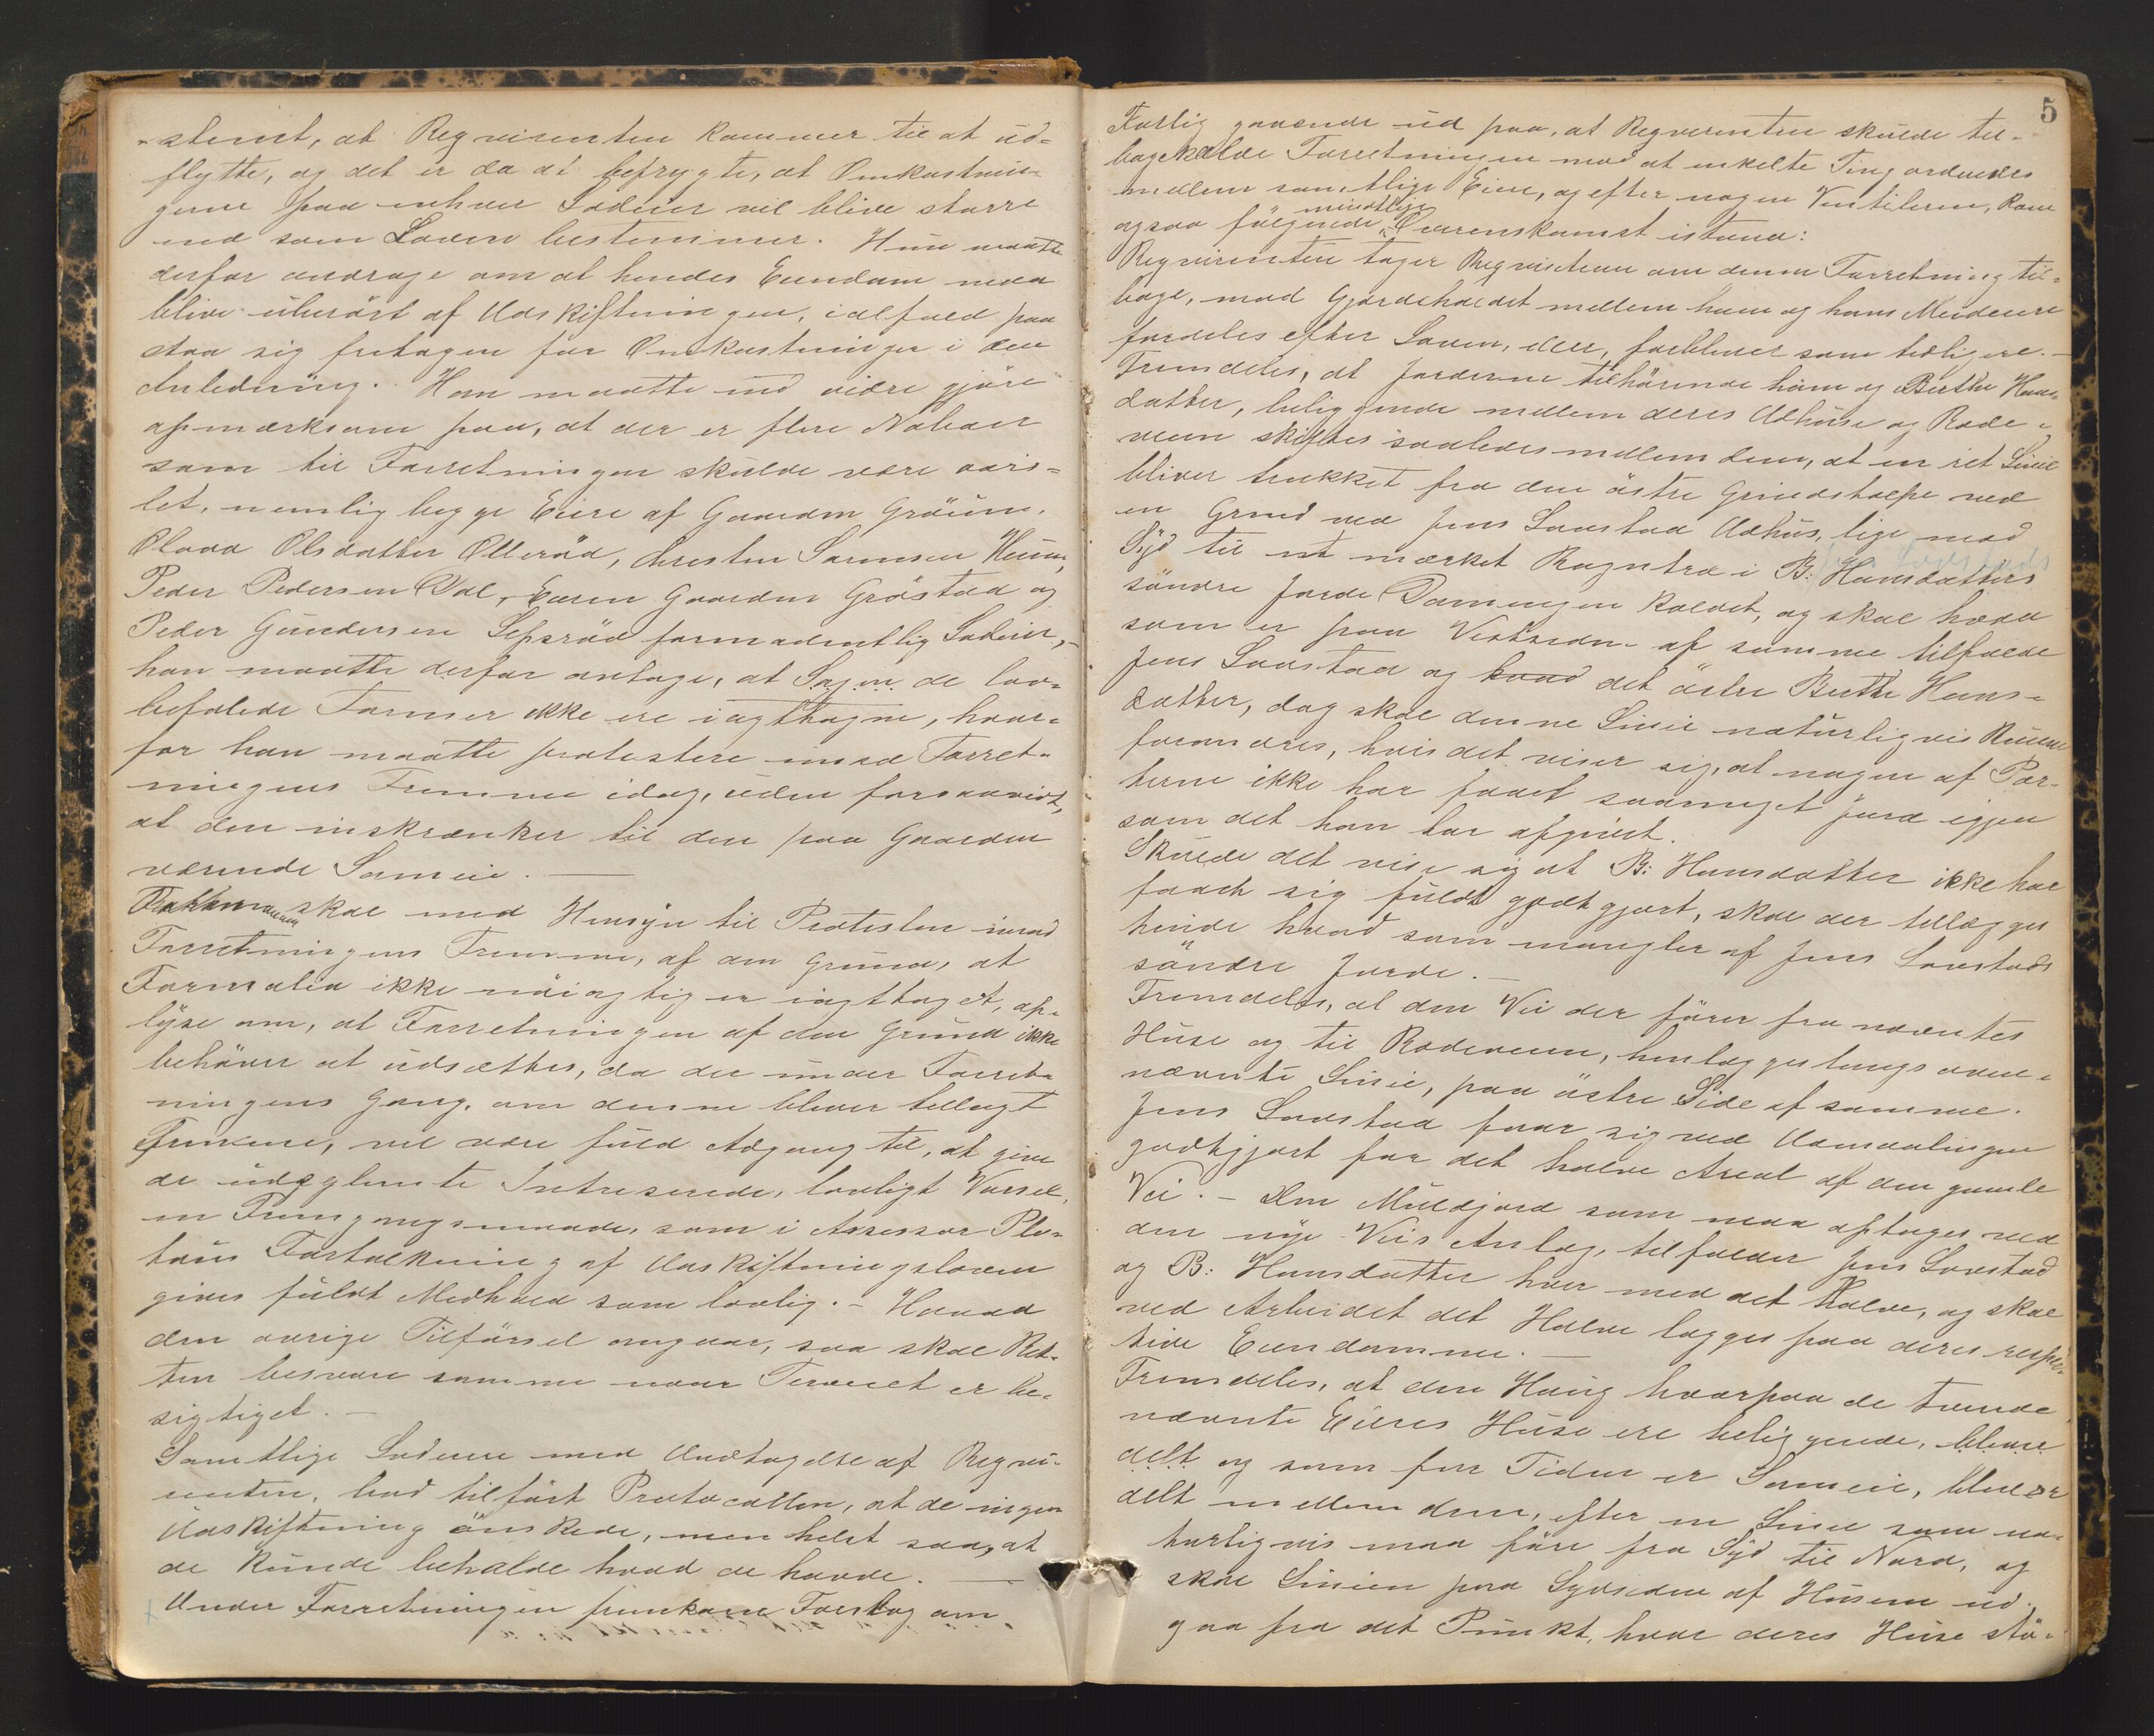 stemt, at Reqvirenten kommer til at ud-
flytte, og det er da at befrygte, at Omkostnin-
gerne paa enhver Lodeier vil blive større
end som Loven bestemmer. Hun maatte
derfor andrage om at hendes Eiendom maa
blive uberørt af Udskiftningen, ialfald paa
staa sig fritagen for Omkostninger i den
Anledning. Han maatte end videre gjøre
opmærksom paa, at der er flere Naboer
som til Forretningen skulde være vars-
let, nemlig begge Eiere af Gaarden Grøum,
Olava Olsdatter Ollerød, Christen Sørensen Heum,
Peder Pedersen Dal, Eieren Gaarden Gröstad og
Peder Gundersen Sepsrød formodentlig Lodeier,
han maatte derfor antage, at Sagen de lov-
befalede Former ikke ere iagttagne, hvor-
for han maatte protestere imod Forret-
ningens Fremme idag, uden forsaavidt,
at den inskrænker til den paa Gaarden
værende Sameie.
Formanden skal med Hensyn til Protesten imod
Forretningens Fremme, af den Grund, at
Formalia ikke nöiagtig er iagttaget, op-
lyse om, at Forretningen af den Grund ikke
behöver at udsættes, da der under Forret-
ningens Gang, om denne bliver tillagt
Fremme, vil være fuld Adgang til, at give
de udeglemte Intreserede, lovligt Varsel,
en Fremgangsmaade, som i Assessor Pla-
tous Fortolkning af Udskiftningsloven
gives fuldt Medhold som lovlig. – Hvad
den øvrige Tilførsel angaar, saa skal Ret-
ten besvare samme naar Terrenet er be-
sigtiget. –
Samtlige Lodeiere med Undtagelse af Reqvi-
renten, bad tilført Protocollen, at de ingen
Udskiftning önskede, men helst saa, at
de kunde beholde hvad de havde. –
Under Forretningen fremkom Forslag om
5
gaaende ud paa, at Reqvirenten skulde til-
bagekalde Forretningen mod at enkelte Ting ordnedes
mellem samtlige Eiere, og efter nogen Ventileren, kom
ogsaa følgende mindelige Overenskomst istand:
Reqvirenten tager Reqvisitionen om denne Forretning til-
bage, mod Gjærdeholdet mellem ham og hans Medeiere
fordeles efter Loven, eller, forbliver som tidligere. –
Fremdeles, at Jorderne tilhörende ham og Berthe Hans-
datter, beliggende mellem deres Udhuse og Rode-
veien skiftes saaledes mellem dem, at en ret Linie
bliver trukket fra den östre Grindstolpe ved
en Grind ved Jens Lovstad Udhus, lige mod
Syd til et mærket Rogntræ i B: Hansdatters
söndre Jorde Damengen kaldet, og skal hvad
som er paa Vestsiden af samme tilfalde
Jens Lovstad og hvad det östre Berthe Hans-
datter, dog skal denne Linie naturligvis kunne
forandres, hvis det viser sig, at nogen af Par-
terne ikke har faaet saameget Jord igjen
som det han har afgivet.
Skulde det vise sig at B: Hansdatter ikke har
faaet sig fuldt godtgjort, skal der tillægges
hende hvad som mangler af Jens Lovstads
söndre Jorde. –
Fremdeles, at den Vei der fører fra nævntes
Huse og til Rodeveien, henlægges langs oven-
nævnte Linie, paa östre Side af samme.
Jens Lovstad faar sig ved Udmaalingen
godtgjort for det halve Areal af den gamle
Vei. – Den Muldjord som maa optages ved
den nye Veis Anlæg, tilfalder Jens Lovstad
og B: Hansdatter hver med det Halve, og skal
ved Arbeidet det Halve lægges paa deres respec-
tive Eiendomme. –
Fremdeles, at den Haug hvorpaa de tvende
nævnte Eieres Huse ere beliggende, blive
delt og som for Tiden er Sameie, bliver
delt mellem dem, efter en Linie som na-
turligvis maa føre fra Syd til Nord, og
skal Linien paa Sydsiden af Husene ud-
gaa fra det Punkt, hvor deres Huse stö-